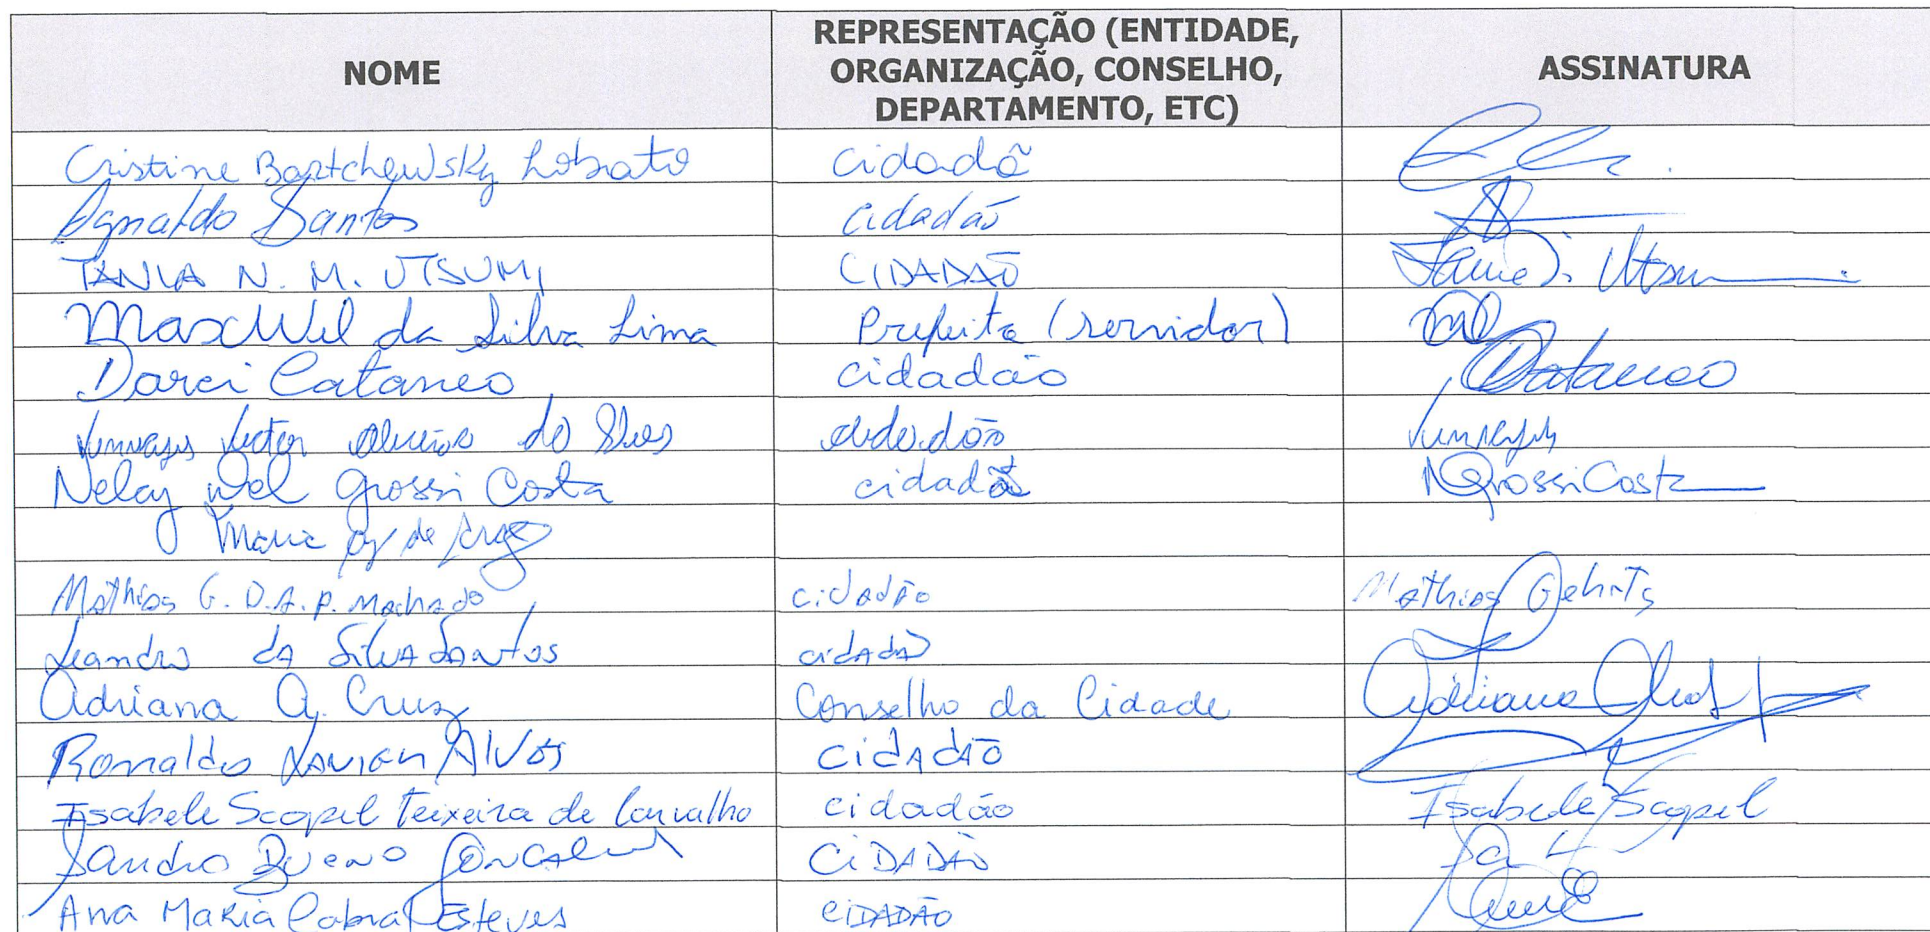 NOME
REPRESENTAÇÃO (ENTIDADE,
ORGANIZAÇÃO, CONSELHO,
DEPARTAMENTO, ETC)
ASSINATURA
Cristine Bartchewsky Lobrato cidadã
Agnaldo Santos cidadão
TANIA N. M. UTSUMI CIDADÃO
Maxwel da Silva Lima Prefeita (servidor)
Darci Cataneo cidadão Cataneo
cidadão
Nelcy Grossi Costa cidadã NGrossi Costa
Maria de
Mathias G. D. A. P. Machado cidadão Mathias
Leandro da Silva Santos cidadão
Adriana A. Cruz Conselho da Cidade Adriana
Ronaldo Alves cidadão
Isabele Scopel Teixeira de Carvalho cidadão Isabele Scopel
Sandro Bueno Goncalves CIDADÃO
Ana Maria Cabral Esteves CIDADÃO